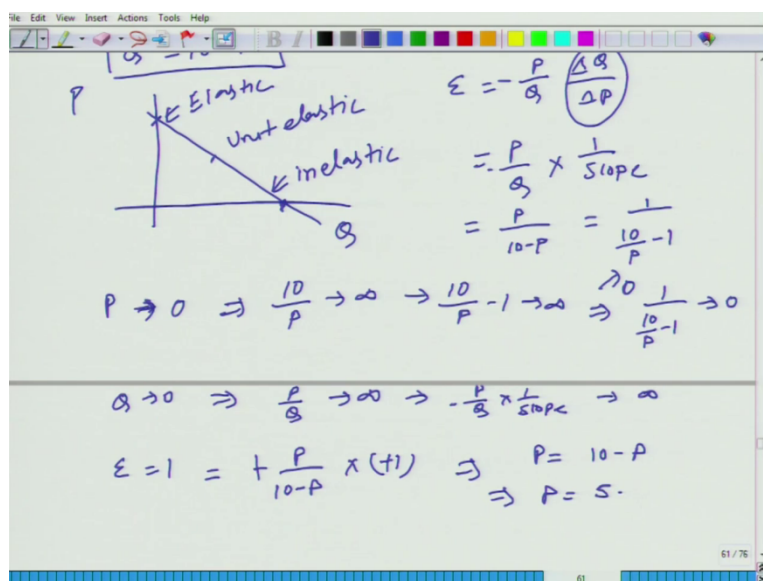 File Edit View Insert Actions Tools Help
P
Elastic
Unit elastic
inelastic
Q
ε = - P/Q (ΔQ/ΔP)
= - P/Q × 1/Slope
= P/10-P = 1/(10/P - 1)
P → 0 ⇒ 10/P → ∞ → 10/P - 1 → ∞ ⇒ 1/(10/P - 1) → 0
Q → 0 ⇒ P/Q → ∞ → - P/Q × 1/Slope → ∞
ε = 1 = + P/10-P × (+1) ⇒ P = 10 - P
⇒ P = 5.
61 / 76
61